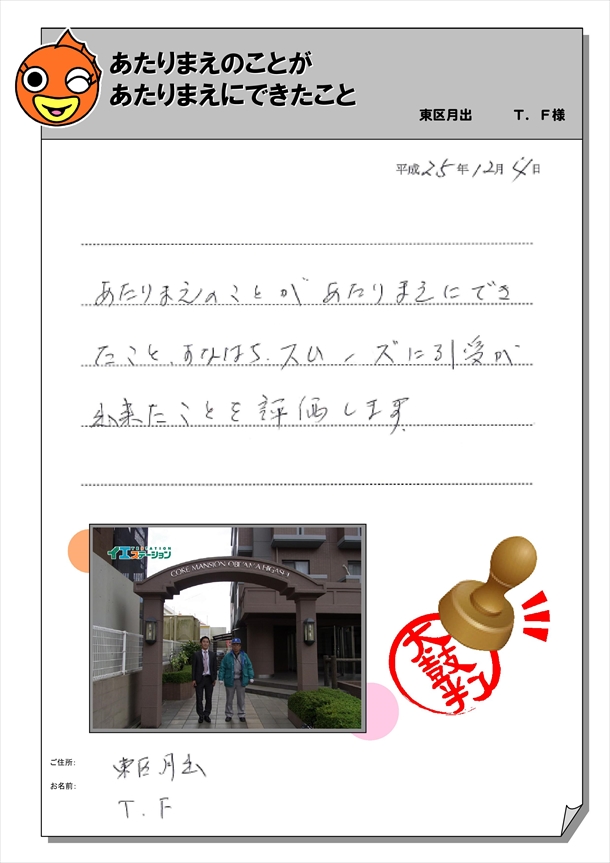 あたりまえのことが
あたりまえにできたこと
東区月出 T．F様
平成25年12月4日
あたりまえのことが あたりまえにでき
たこと、すなはち、スムーズに引受が
出来たことを評価します。
イエステーション
CORE MANSION OBIYAMA HIGASHI
太鼓判
ご住所： 東区月出
お名前： T．F